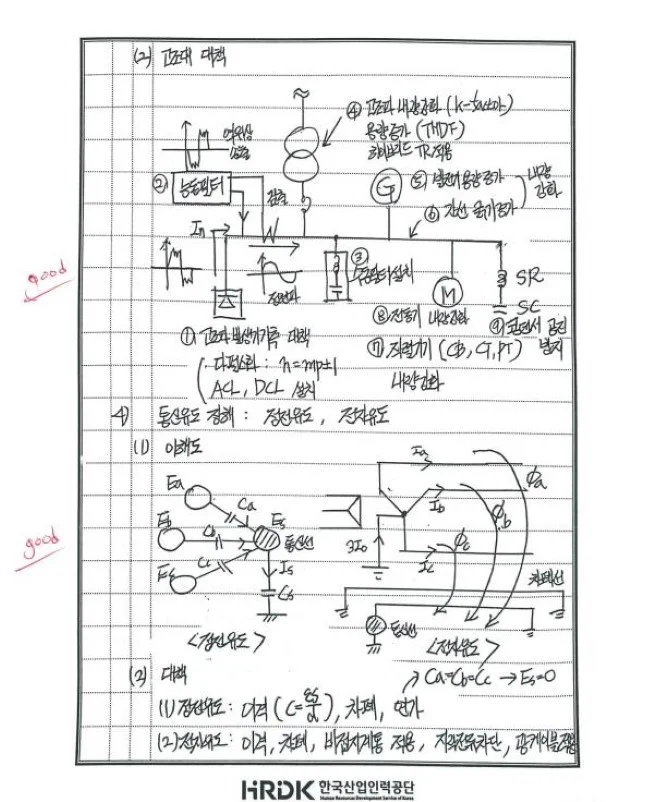 (2) 고조파 대책
④ 고조파 내량강화 (K-factor)
용량증가 (THDF)
하이브리드 TR적용
역위상
② 능동필터
검출
G ⑤ 발전기 용량증가
⑥ 간선 굵기증가
내량
강화
In
정현파
③
수동필터설치
M
SR
SC
⑧ 전동기 내량강화
⑨ 콘덴서 공진
방지
① 고조파 발생기기측 대책
다펄스화 : n=mp±1
ACL, DCL 설치
⑦ 직렬기기 (CB, CT, PT)
내량강화
good
4) 통신유도 장해 : 정전유도, 전자유도
(1) 이해도
Ea
Ca
Eb
Cb
Es
통신선
Ec
Cc
Is
Cs
<정전유도>
Ia
Ib
Ic
3I₀
Φa
Φb
Φc
차폐선
통신선
<전자유도>
good
(2) 대책
→ Ca=Cb=Cc → Es=0
(1) 정전유도: 이격 (C=εS/d), 차폐, 연가
(2) 전자유도: 이격, 차폐, 비접지계통 적용, 지락전류차단, 광케이블적용
HRDK 한국산업인력공단
Human Resources Development Service of Korea